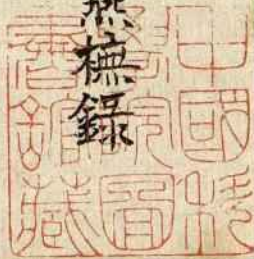 橅錄
中國科
學院圖
書館藏